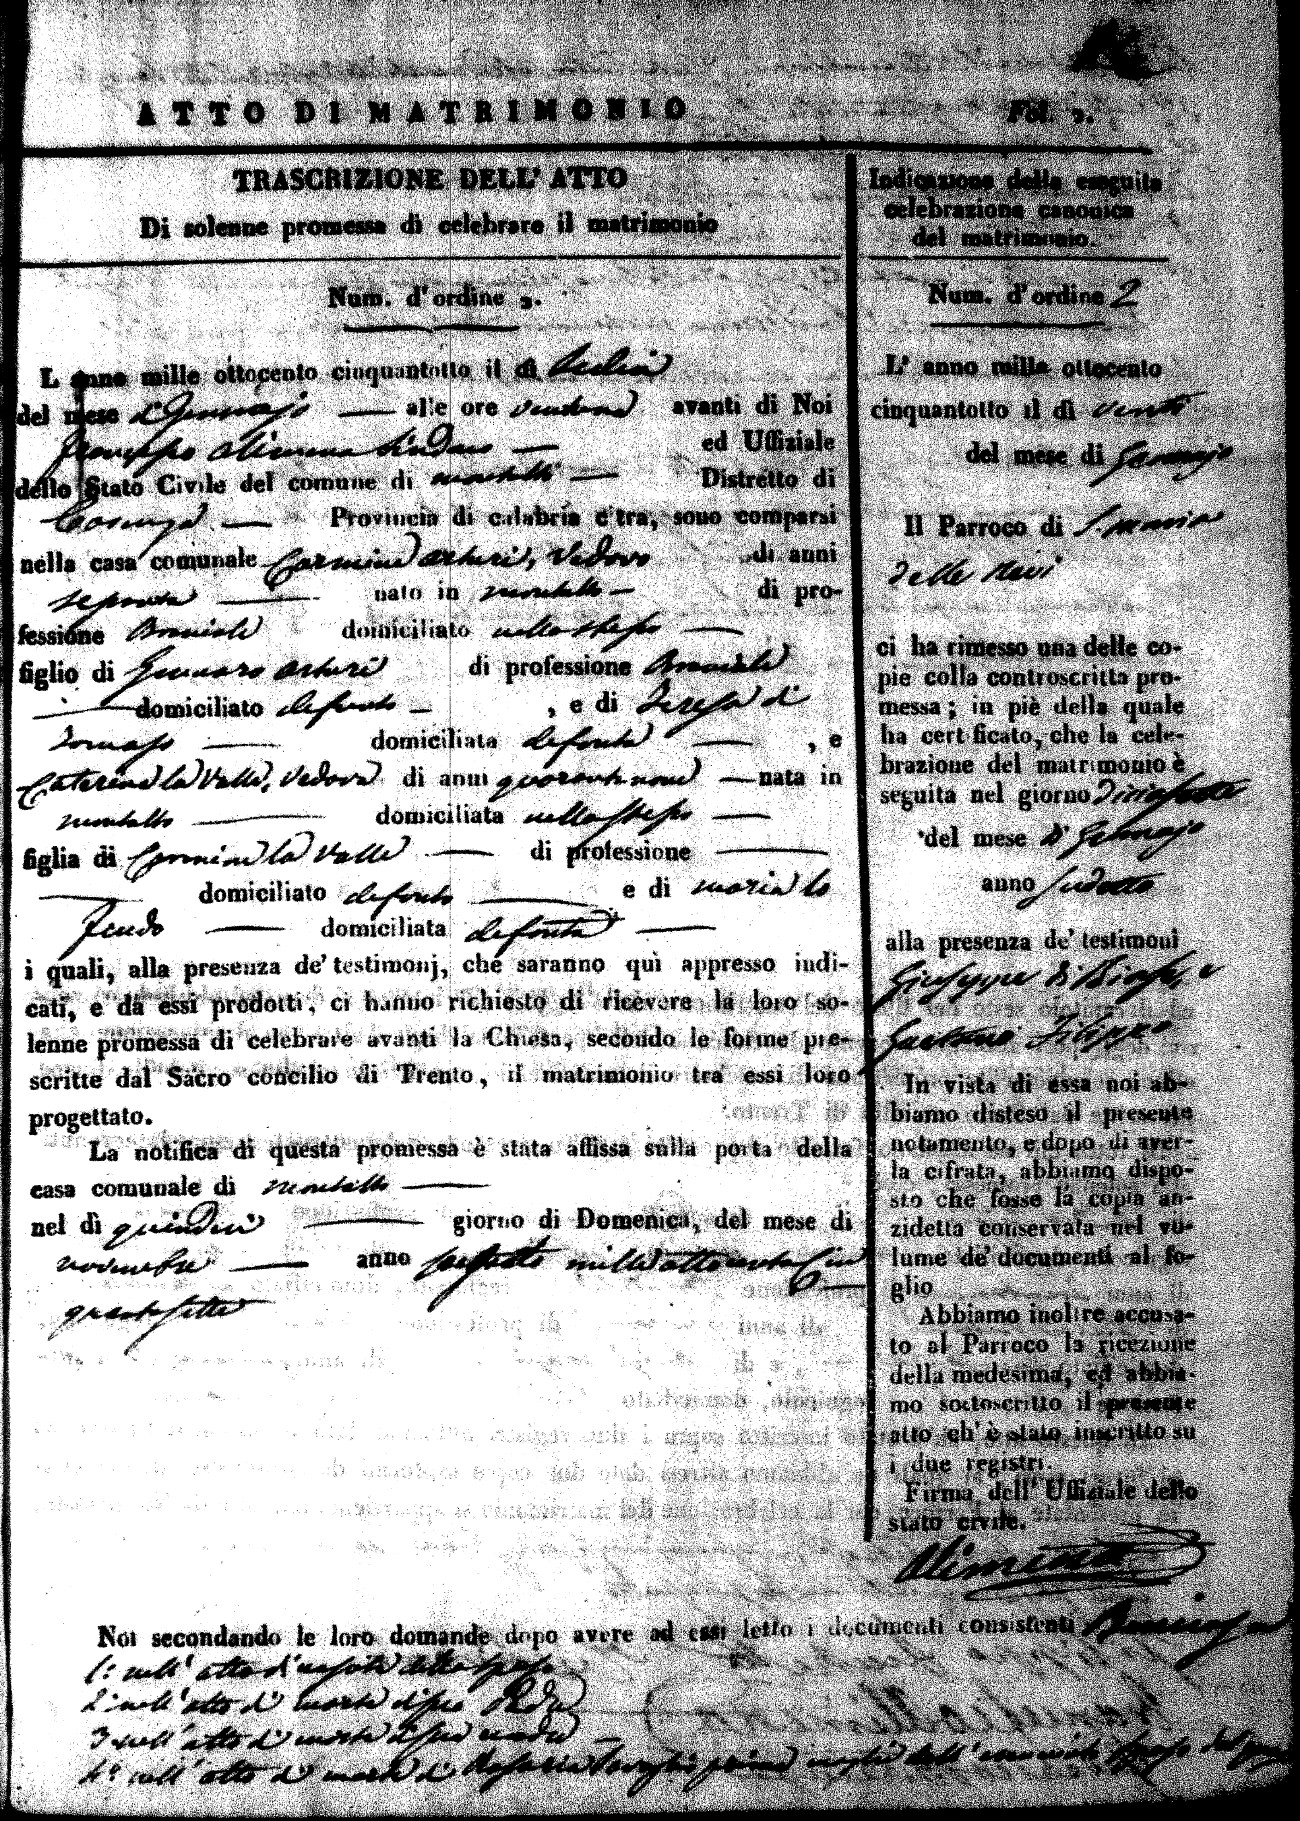 ATTO DI MATRIMONIO
Fol. 2.
TRASCRIZIONE DELL' ATTO
Di solenne promessa di celebrare il matrimonio
Num. d'ordine 2.
L anno mille ottocento cinquantotto il dì
del mese di Gennajo — alle ore avanti di Noi
Giuseppe Alimena Sindaco — ed Uffiziale
dello Stato Civile del comune di Montalto — Distretto di
Cosenza — Provincia di calabria citra, sono comparsi
nella casa comunale Carmine Arturi, Vedovo di anni
sessanta — nato in Montalto — di pro-
fessione Bracciale domiciliato nello stesso —
figlio di Gennaro Arturi di professione Bracciale
— domiciliato defonto — , e di Teresa di
Tomaso — domiciliata defonta — , e
Caterina la Valle, Vedova di anni quarantanove — nata in
Montalto — domiciliata nello stesso —
figlia di Carmine la Valle — di professione —
— domiciliato defonto — e di Maria lo
Feudo — domiciliata defonta —
i quali, alla presenza de' testimonj, che saranno quì appresso indi-
cati, e da essi prodotti, ci hanno richiesto di ricevere la loro so-
lenne promessa di celebrare avanti la Chiesa, secondo le forme pre-
scritte dal Sacro concilio di Trento, il matrimonio tra essi loro
progettato.
La notifica di questa promessa è stata affissa sulla porta della
casa comunale di Montalto —
nel dì quindici — giorno di Domenica, del mese di
novembre — anno mille ottocento cin
quantasette
Indicazione della eseguita
celebrazione canonica
del matrimonio.
Num. d'ordine 2
L' anno mille ottocento
cinquantotto il dì venti
del mese di Gennajo
Il Parroco di S. Maria
della Nevi
ci ha rimesso una delle co-
pie colla controscritta pro-
messa; in piè della quale
ha certificato, che la cele-
brazione del matrimonio è
seguita nel giorno diciasette
del mese di Gennajo
anno sudetto
alla presenza de' testimoni
Giuseppe di Biase, e
Gaetano Filippo
In vista di essa noi ab-
biamo disteso il presente
notamento, e dopo di aver-
la cifrata, abbiamo dispo-
sto che fosse la copia an-
zidetta conservata nel vo-
lume de' documenti al fo-
glio
Abbiamo inoltre accusa-
to al Parroco la ricezione
della medesima, ed abbia-
mo sottoscritto il presente
atto ch' è stato inscritto su
i due registri.
Firma dell' Uffiziale dello
stato civile.
Alimena
Noi secondando le loro domande dopo avere ad essi letto i documenti consistenti
1.° nell' atto di nascita dello sposo
2.° nell' atto di morte di suo Padre
3 nell' atto di morte di sua madre —
4.° nell' atto di morte di prima moglie dell' sposo